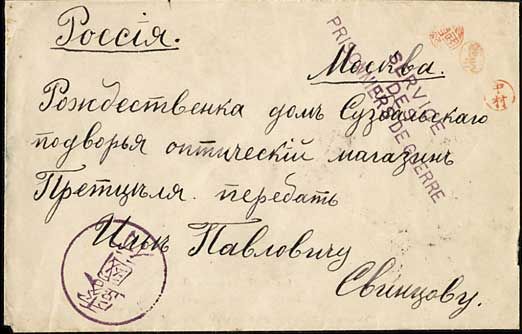 Россія.
Москва.
SERVICE
DES
PRISONNIERS DE GUERRE
中村
Рождественка домъ Суздальскаго
подворья оптическій магазинъ
Претцеля передать
Павловичу
Свинцову.